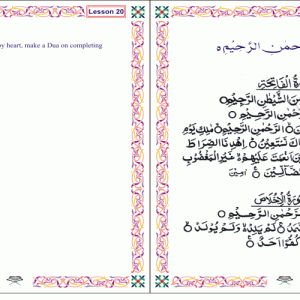 Lesson 20
by heart, make a Dua on completing
حْمٰنِ الرَّحِيْمِ
الْفَاتِحَةِ
الشَّيْطٰنِ الرَّجِيْمِ
حْمٰنِ الرَّحِيْمِ
الرَّحْمٰنِ الرَّحِيْمِ مٰلِكِ يَوْمِ
اكَ نَسْتَعِيْنُ اِهْدِنَا الصِّرَاطَ
نَ اَنْعَمْتَ عَلَيْهِمْ غَيْرِ الْمَغْضُوْبِ
ضَّآلِّيْنَ اٰمِيْن
رَةُ الْاِخْلَاصِ
الرَّحْمٰنِ الرَّحِيْمِ
مَدُ لَمْ يَلِدْ وَلَمْ يُوْلَدْ
كُفُوًا اَحَدٌ